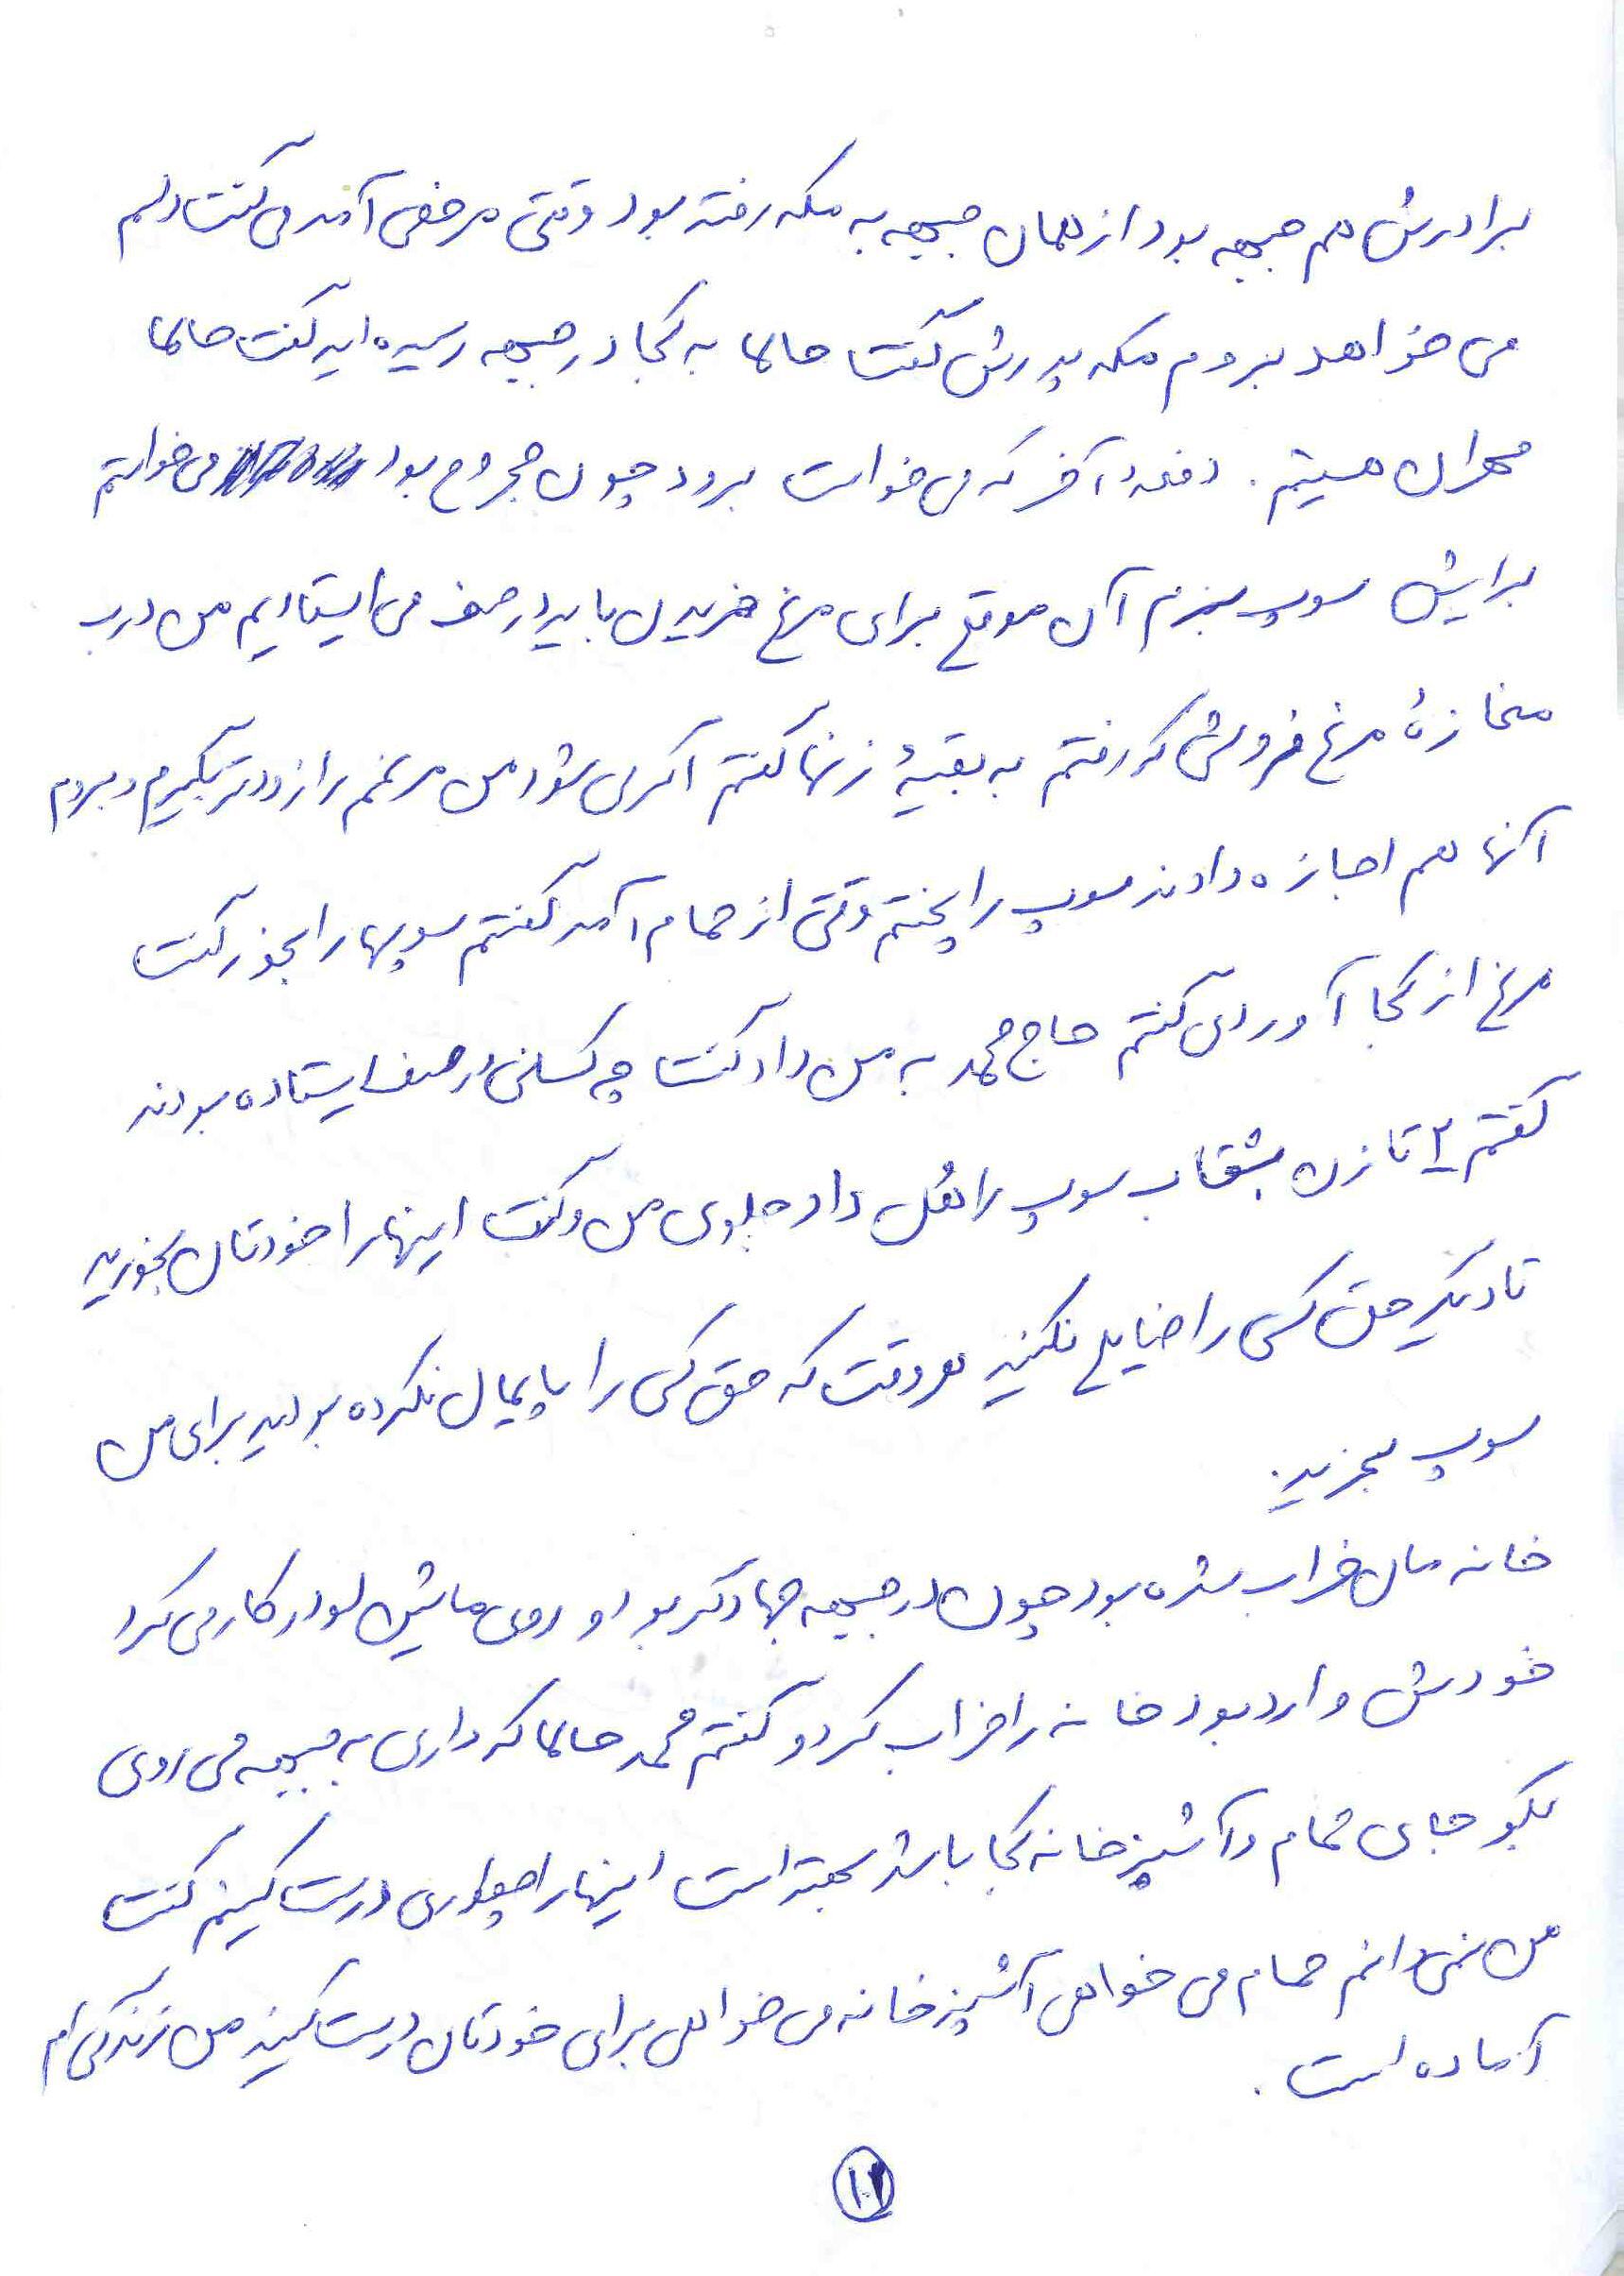 برادرش هم جبهه بود از همان جبهه به مکه رفته بود وقتی مرخصی آمد می گفت دلم
می خواهد بروم مکه پدرش گفت حالا به کجا در جبهه رسیده اید گفت حالا
مهران هستیم. دفعه آخر که می خواست برود چون مجروح بود می خواستم
برایش سوپ بپزم آن موقع برای مرغ خریدن باید در صف می ایستادیم من درب
مغازهٔ مرغ فروش که رفتم به بقیهٔ زنها گفتم اگر می شود من مرغم را زودتر بگیرم و بروم
آنها هم اجازه دادند سوپ را پختم وقتی از حمام آمد گفتم سوپها را بخور گفت
مرغ از کجا آوردی گفتم حاج محمد به من داد گفت چه کسانی در صف ایستاده بودند
گفتم ۲ تا زن بشقاب سوپ را هُل داد جلوی من و گفت اینها را خودتان بخورید
تا دیگر حق کسی را ضایع نکنید هر وقت که حق کسی را پایمال نکرده بودید برای من
سوپ بپزید.
خانه مان خراب شده بود چون در جبهه جهادگر بود و روی ماشین لودر کار می کرد
خودش وارد بود خانه را خراب کرد و گفتم محمد حالا که داری به جبهه می روی
بگو جای حمام و آشپزخانه کجا باشد بهتر است اینها را چطوری درست کنیم گفت
من نمی دانم حمام می خواهی آشپزخانه می خواهی برای خودتان درست کنید من زندگی ام
آماده است.
۱۷